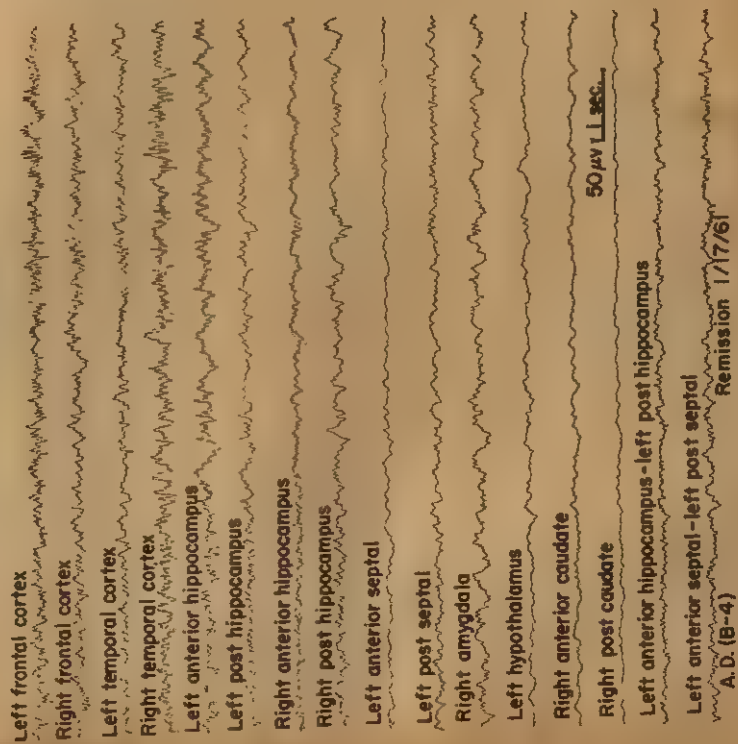 Left frontal cortex
Right frontal cortex
Left temporal cortex
Right temporal cortex
Left anterior hippocampus
Left post hippocampus
Right anterior hippocampus
Right post hippocampus
Left anterior septal
Left post septal
Right amygdala
Left hypothalamus
Right anterior caudate
50 μv 1 sec.
Right post caudate
Left anterior hippocampus-left post hippocampus
Left anterior septal-left post septal
A.D. (B-4) Remission 1/17/61